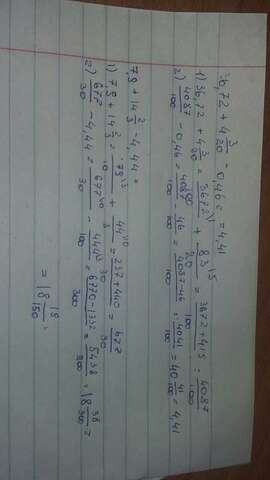 36,72 + 4 3/20 - 0,46 = = 4,41
1) 36,72 + 4 3/20 = 3672\1/100 + 83\5/20 = 3672+415/100 = 4087/100
2) 4087/100 - 0,46 = 4087/100 - 46/100 = 4087-46/100 = 4041/100 = 40 41/100 = 4,41
7,9 + 14 2/3 - 4,44 =
1) 7,9 + 14 2/3 = 79\3/10 + 44\10/3 = 237+440/30 = 677/30
2) 677/30 - 4,44 = 677\10/30 - 444\3/100 = 6770-1332/300 = 5438/300 = 18 38/300 =
= 18 19/150.